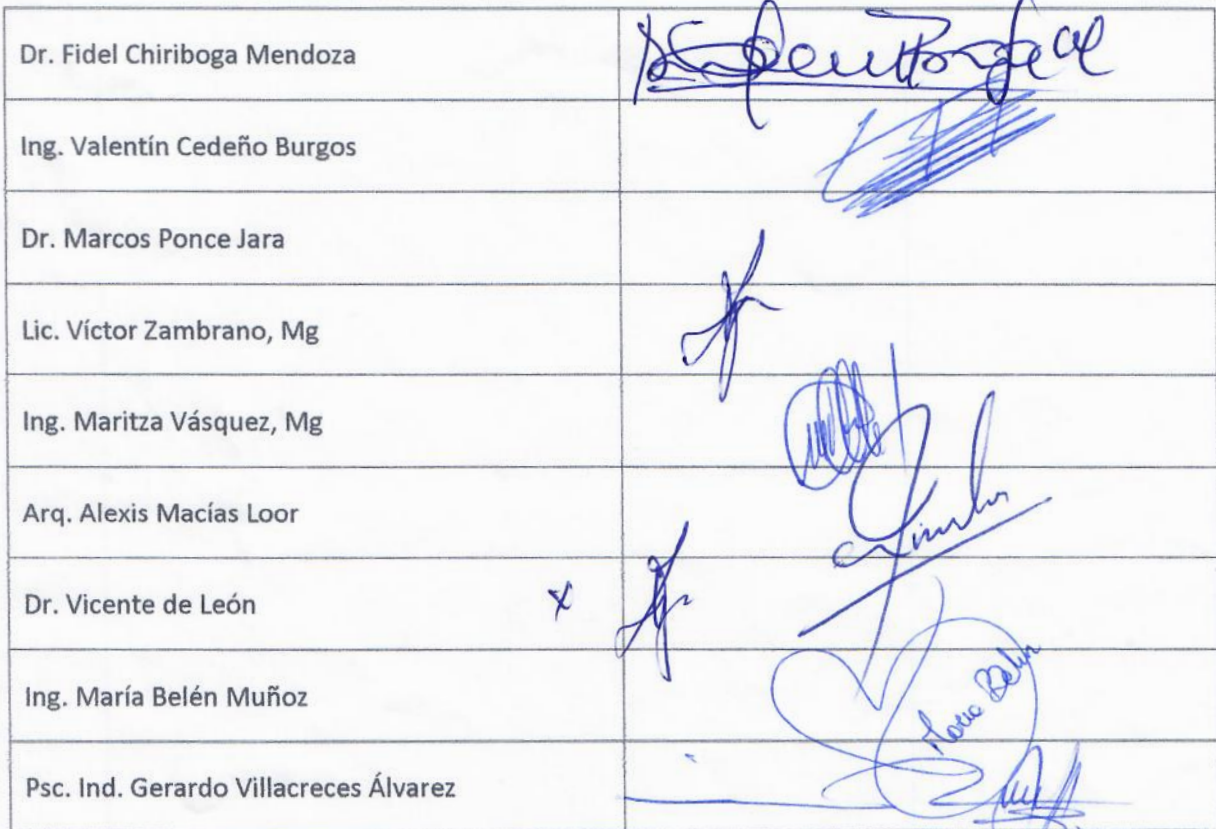 Dr. Fidel Chiriboga Mendoza
Ing. Valentín Cedeño Burgos
Dr. Marcos Ponce Jara
Lic. Víctor Zambrano, Mg
Ing. Maritza Vásquez, Mg
Arq. Alexis Macías Loor
Dr. Vicente de León x
Ing. María Belén Muñoz
Maria Belen
Psc. Ind. Gerardo Villacreces Álvarez